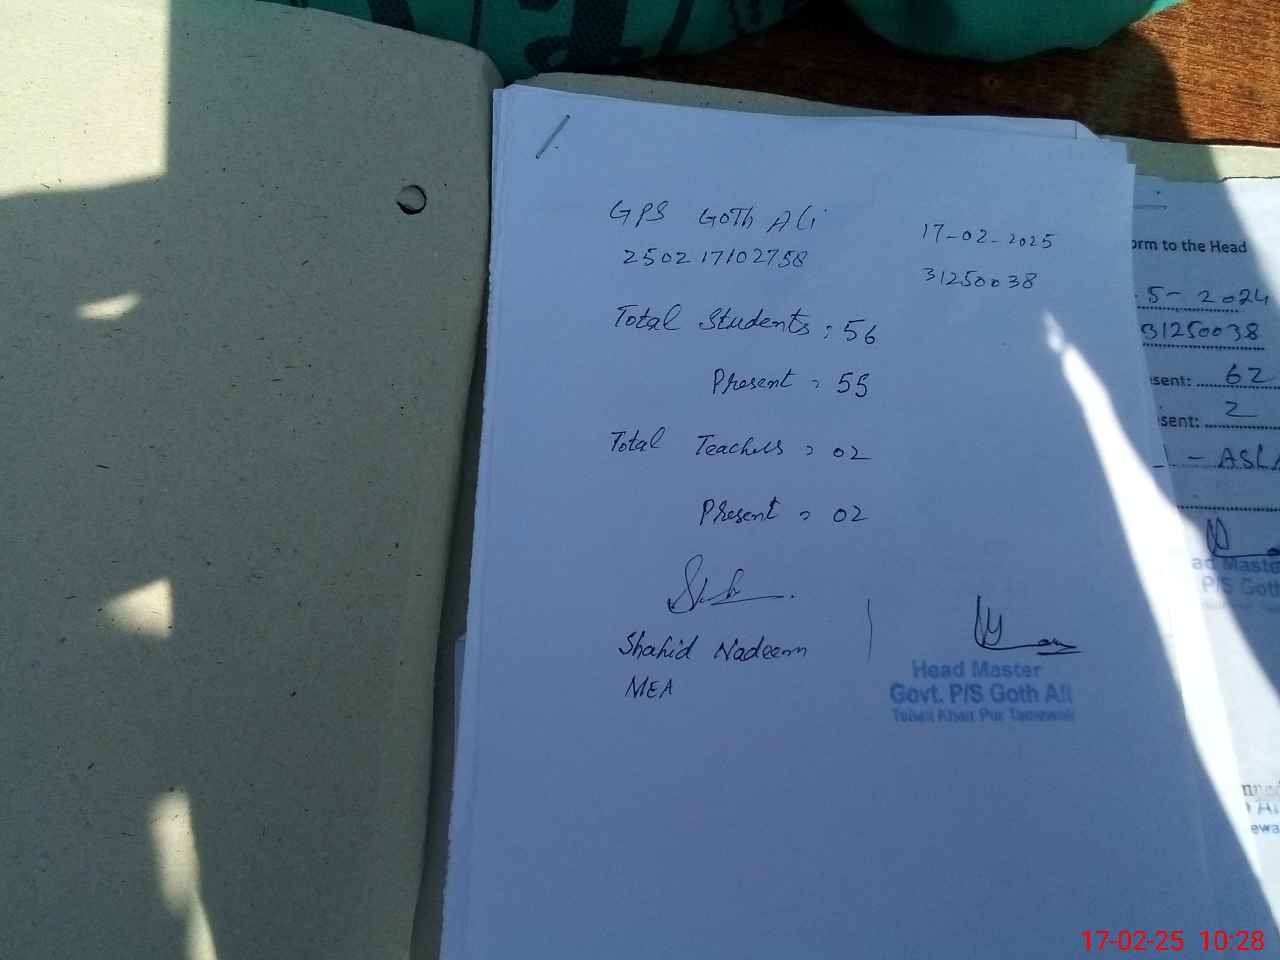 GPS GOTH Ali
17-02-2025
250217102758
31250038
Total Students : 56
Present = 55
Total Teachers = 02
Present = 02
Shahid Nadeem
MEA
Head Master
Govt. P/S Goth Ali
Tehsil Khair Pur Tamewali
orm to the Head
5- 2024
31250038
sent: 62
sent: 2
ad Maste
P/S Goth
17-02-25 10:28